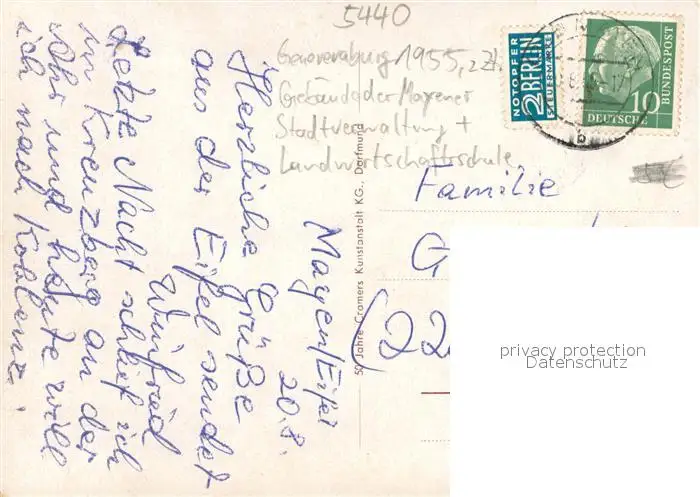 5440
Genovevaburg 1955, z. Zt.
Gebäude der Mayener
Stadtverwaltung +
Landwirtschaftsschule
Mayen/Eifel
20.8.
Herzliche Grüße
aus der Eifel sendet
Winfried
Letzte Nacht schlief ich
in Kreuzberg an der
Ahr und heute will
ich nach Koblenz.
50 Jahre Cramers Kunstanstalt KG., Dortmund
NOTOPFER
2 BERLIN
STEUERMARKE
10
DEUTSCHE
BUNDESPOST
b
Familie
G
(22
privacy protection
Datenschutz